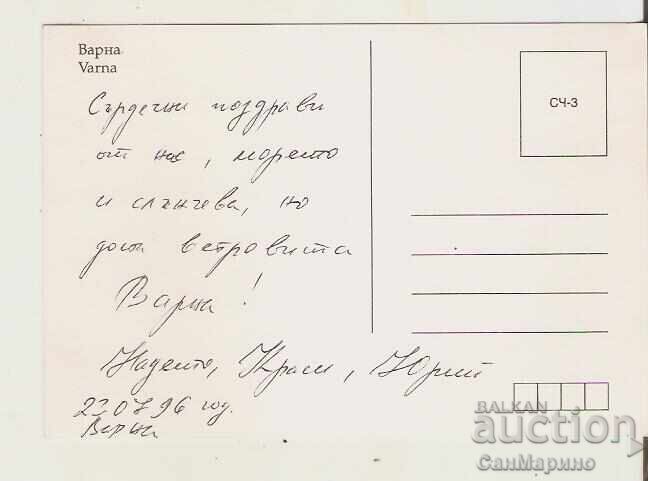 Варна
Varna
СЧ-3
Сърдечни поздрави
от нас, морето
и слънчева, но
доста ветровита
Варна!
Надето, Краси, Юрий
23 07 96 год.
Варна
BALKAN
auction
СанМарино